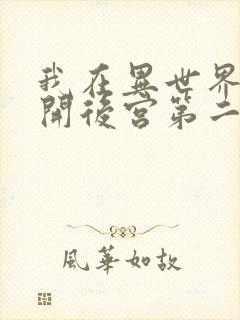 我在異世界
開後宮第二
風華如故